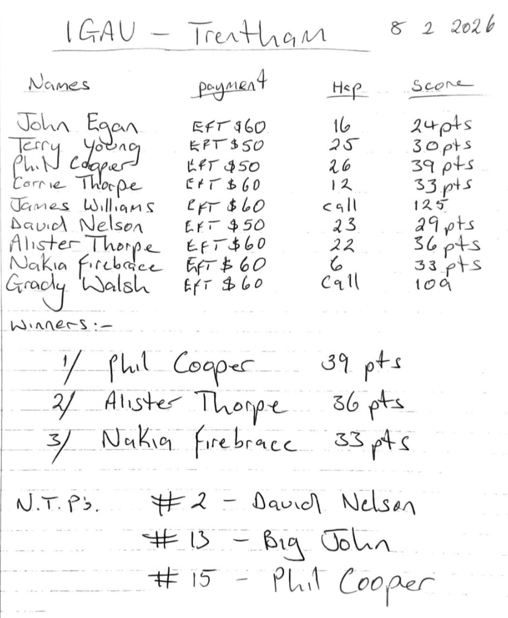 IGAU - Trentham 8 2 2026
Names payment Hcp Score
John Egan EFT $60 16 24pts
Terry Young EFT $50 25 30pts
Phil Cooper EFT $50 26 39 pts
Corrie Thorpe EFT $60 12 33pts
James Williams EFT $60 call 125
David Nelson EFT $50 23 29 pts
Alister Thorpe EFT $60 22 36 pts
Nakia Firebrace EFT $60 6 33 pts
Grady Walsh EFT $60 Call 109
Winners:-
1/ Phil Cooper 39 pts
2/ Alister Thorpe 36 pts
3/ Nakia Firebrace 33 pts
N.T.P's. #2 - David Nelson
#13 - Big John
#15 - Phil Cooper